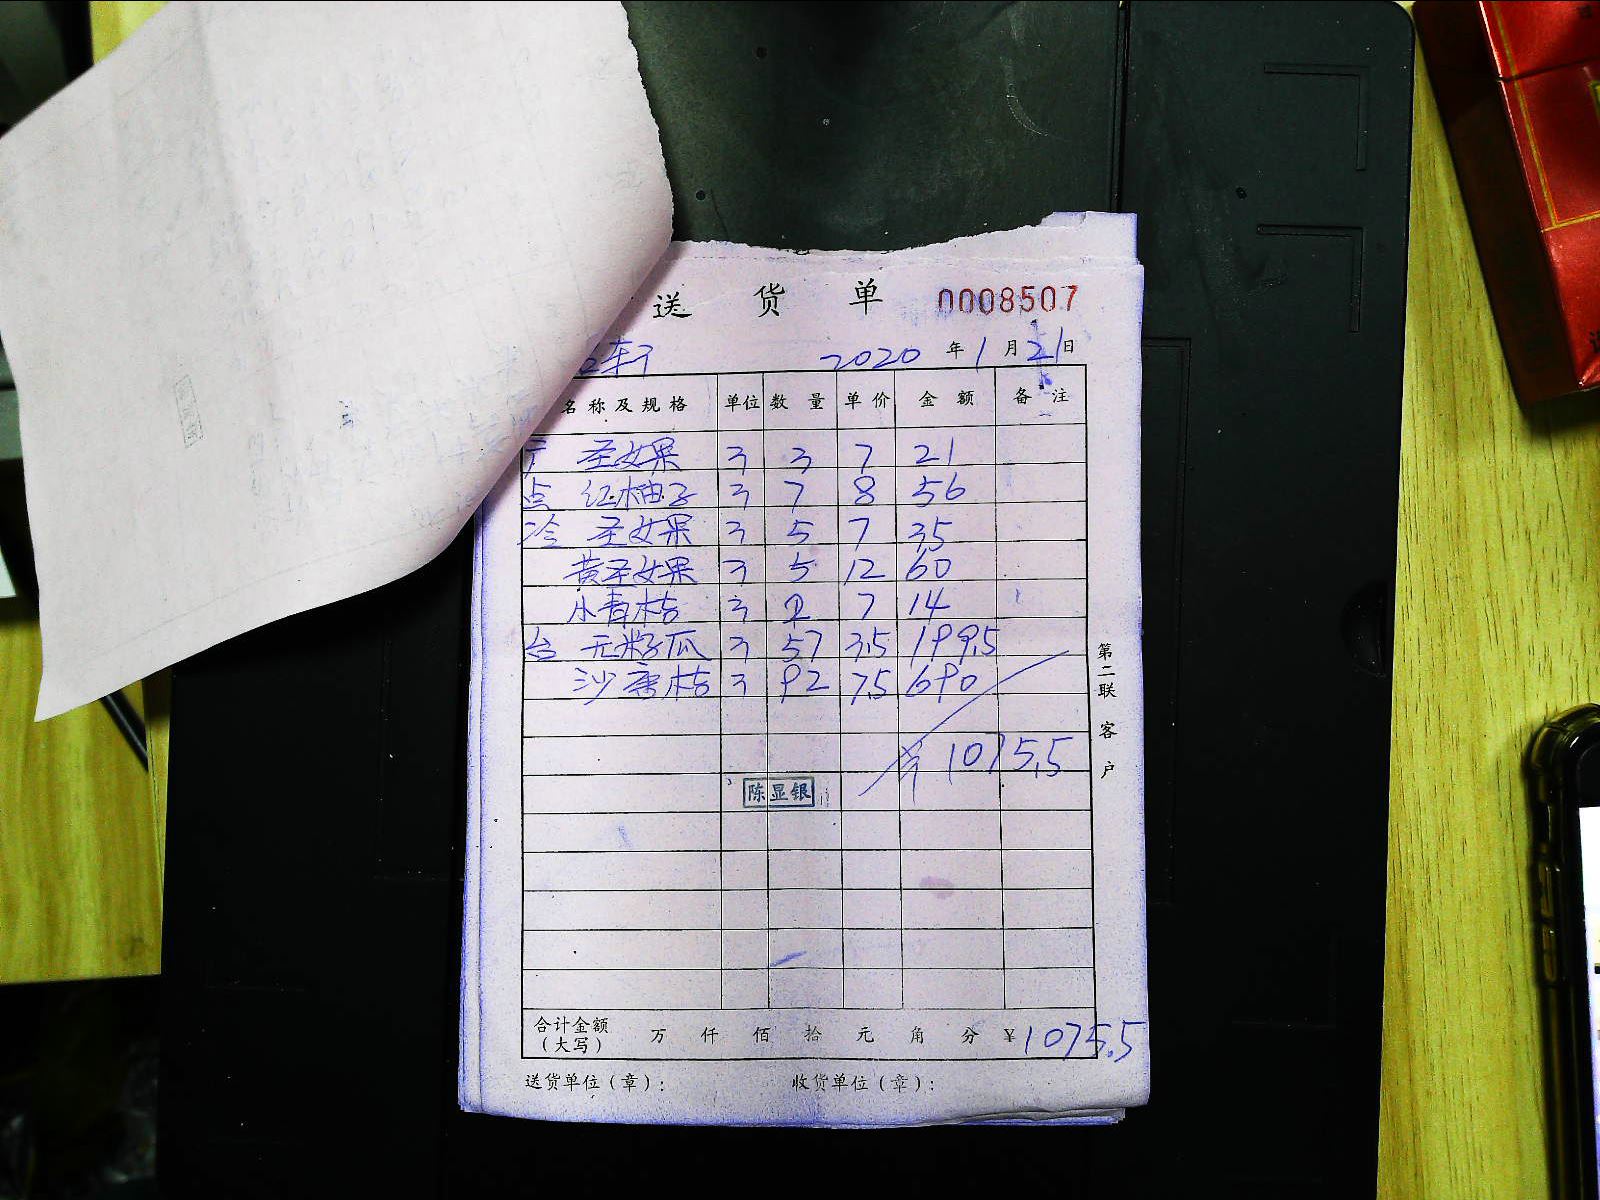 送 货 单 0008507
2020 年 1 月 21 日
名称及规格 单位 数量 单价 金额 备注
圣女果 3 3 7 21
点 红柚子 3 7 8 56
冷 圣女果 3 5 7 35
黄圣女果 3 5 12 60
小青桔 3 2 7 14
台 无籽瓜 3 57 3.5 199.5
沙唐桔 3 92 7.5 690
1075.5
陈显银
第二联 客户
合计金额（大写） 万 仟 佰 拾 元 角 分 ¥1075.5
送货单位（章）： 收货单位（章）：